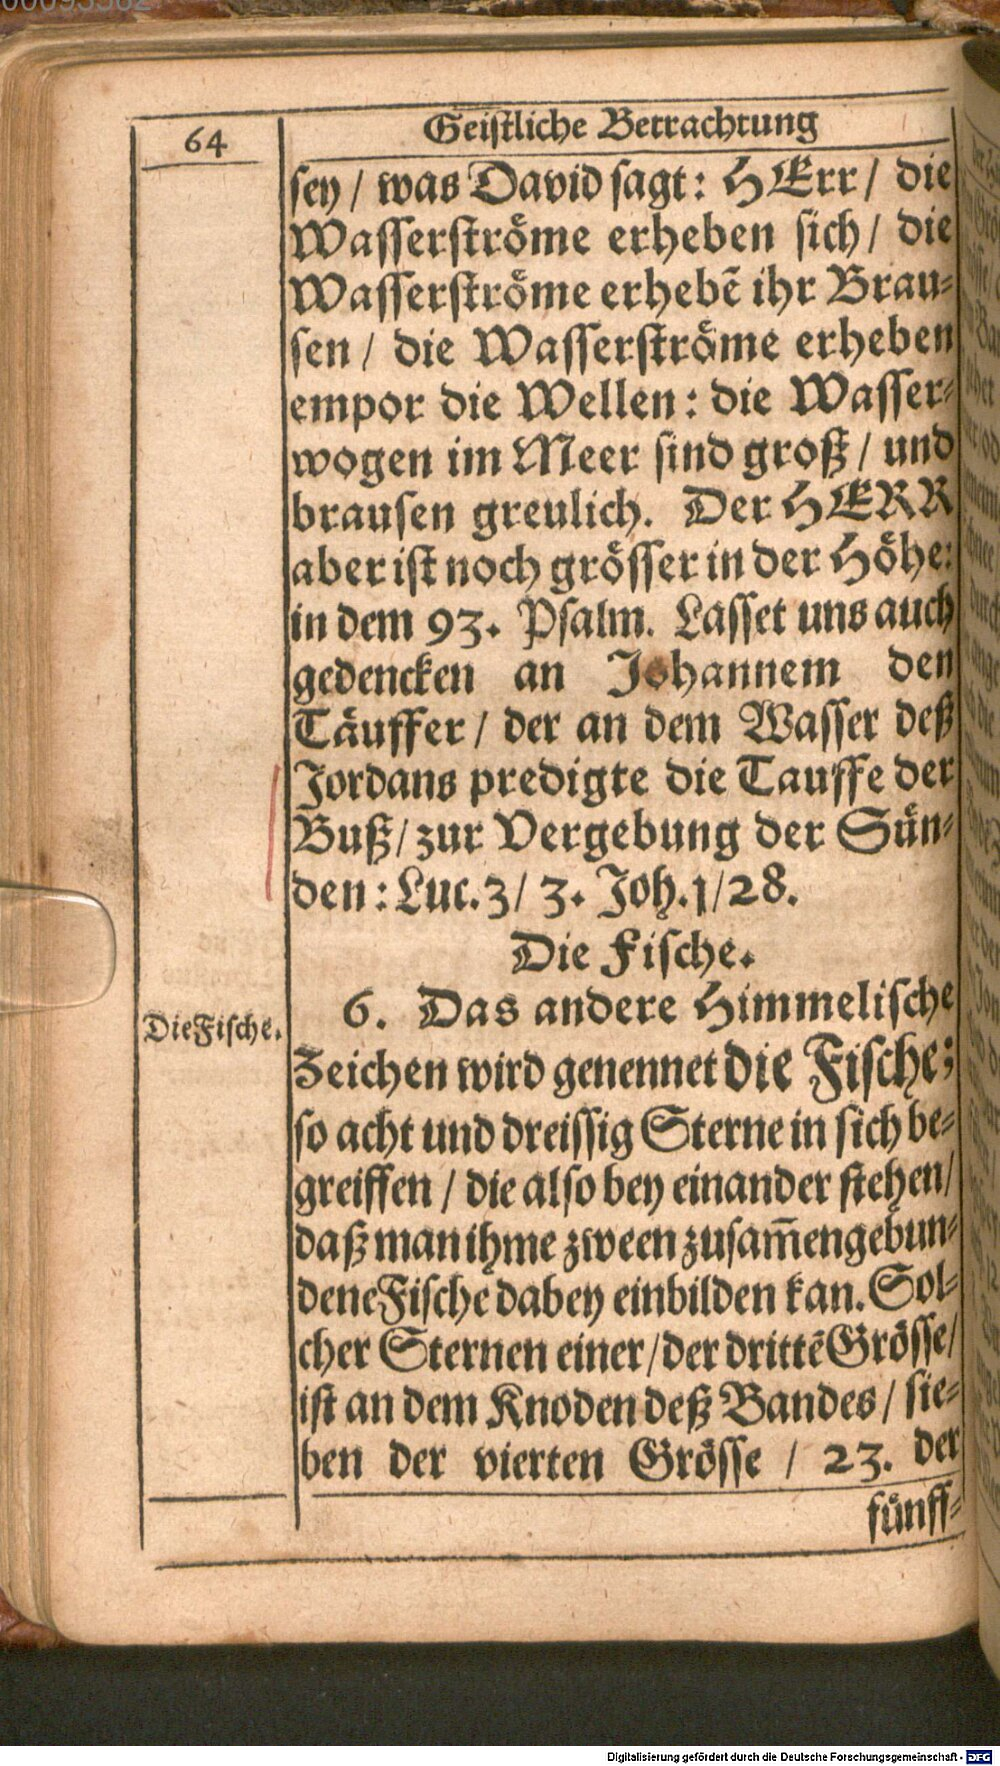 64
Geistliche Betrachtung
sey / was David sagt: HErr / die
Wasserströme erheben sich / die
Wasserströme erhebẽ ihr Brau-
sen / die Wasserströme erheben
empor die Wellen: die Wasser-
wogen im Meer sind groß / und
brausen greulich. Der HERR
aber ist noch grösser in der Höhe:
in dem 93. Psalm. Lasset uns auch
gedencken an Johannem den
Täuffer / der an dem Wasser deß
Jordans predigte die Tauffe der
Buß / zur Vergebung der Sün-
den: Luc. 3 / 3. Joh. 1 / 28.
Die Fische.
Die Fische.
6. Das andere Himmelische
Zeichen wird genennet die Fische;
so acht und dreissig Sterne in sich be-
greiffen / die also bey einander stehen /
daß man ihme zween zusam̃engebun-
dene Fische dabey einbilden kan. Sol-
cher Sternen einer / der drittẽ Grösse /
ist an dem Knoden deß Bandes / sie-
ben der vierten Grösse / 23. der
fünff-
Digitalisierung gefördert durch die Deutsche Forschungsgemeinschaft - DFG